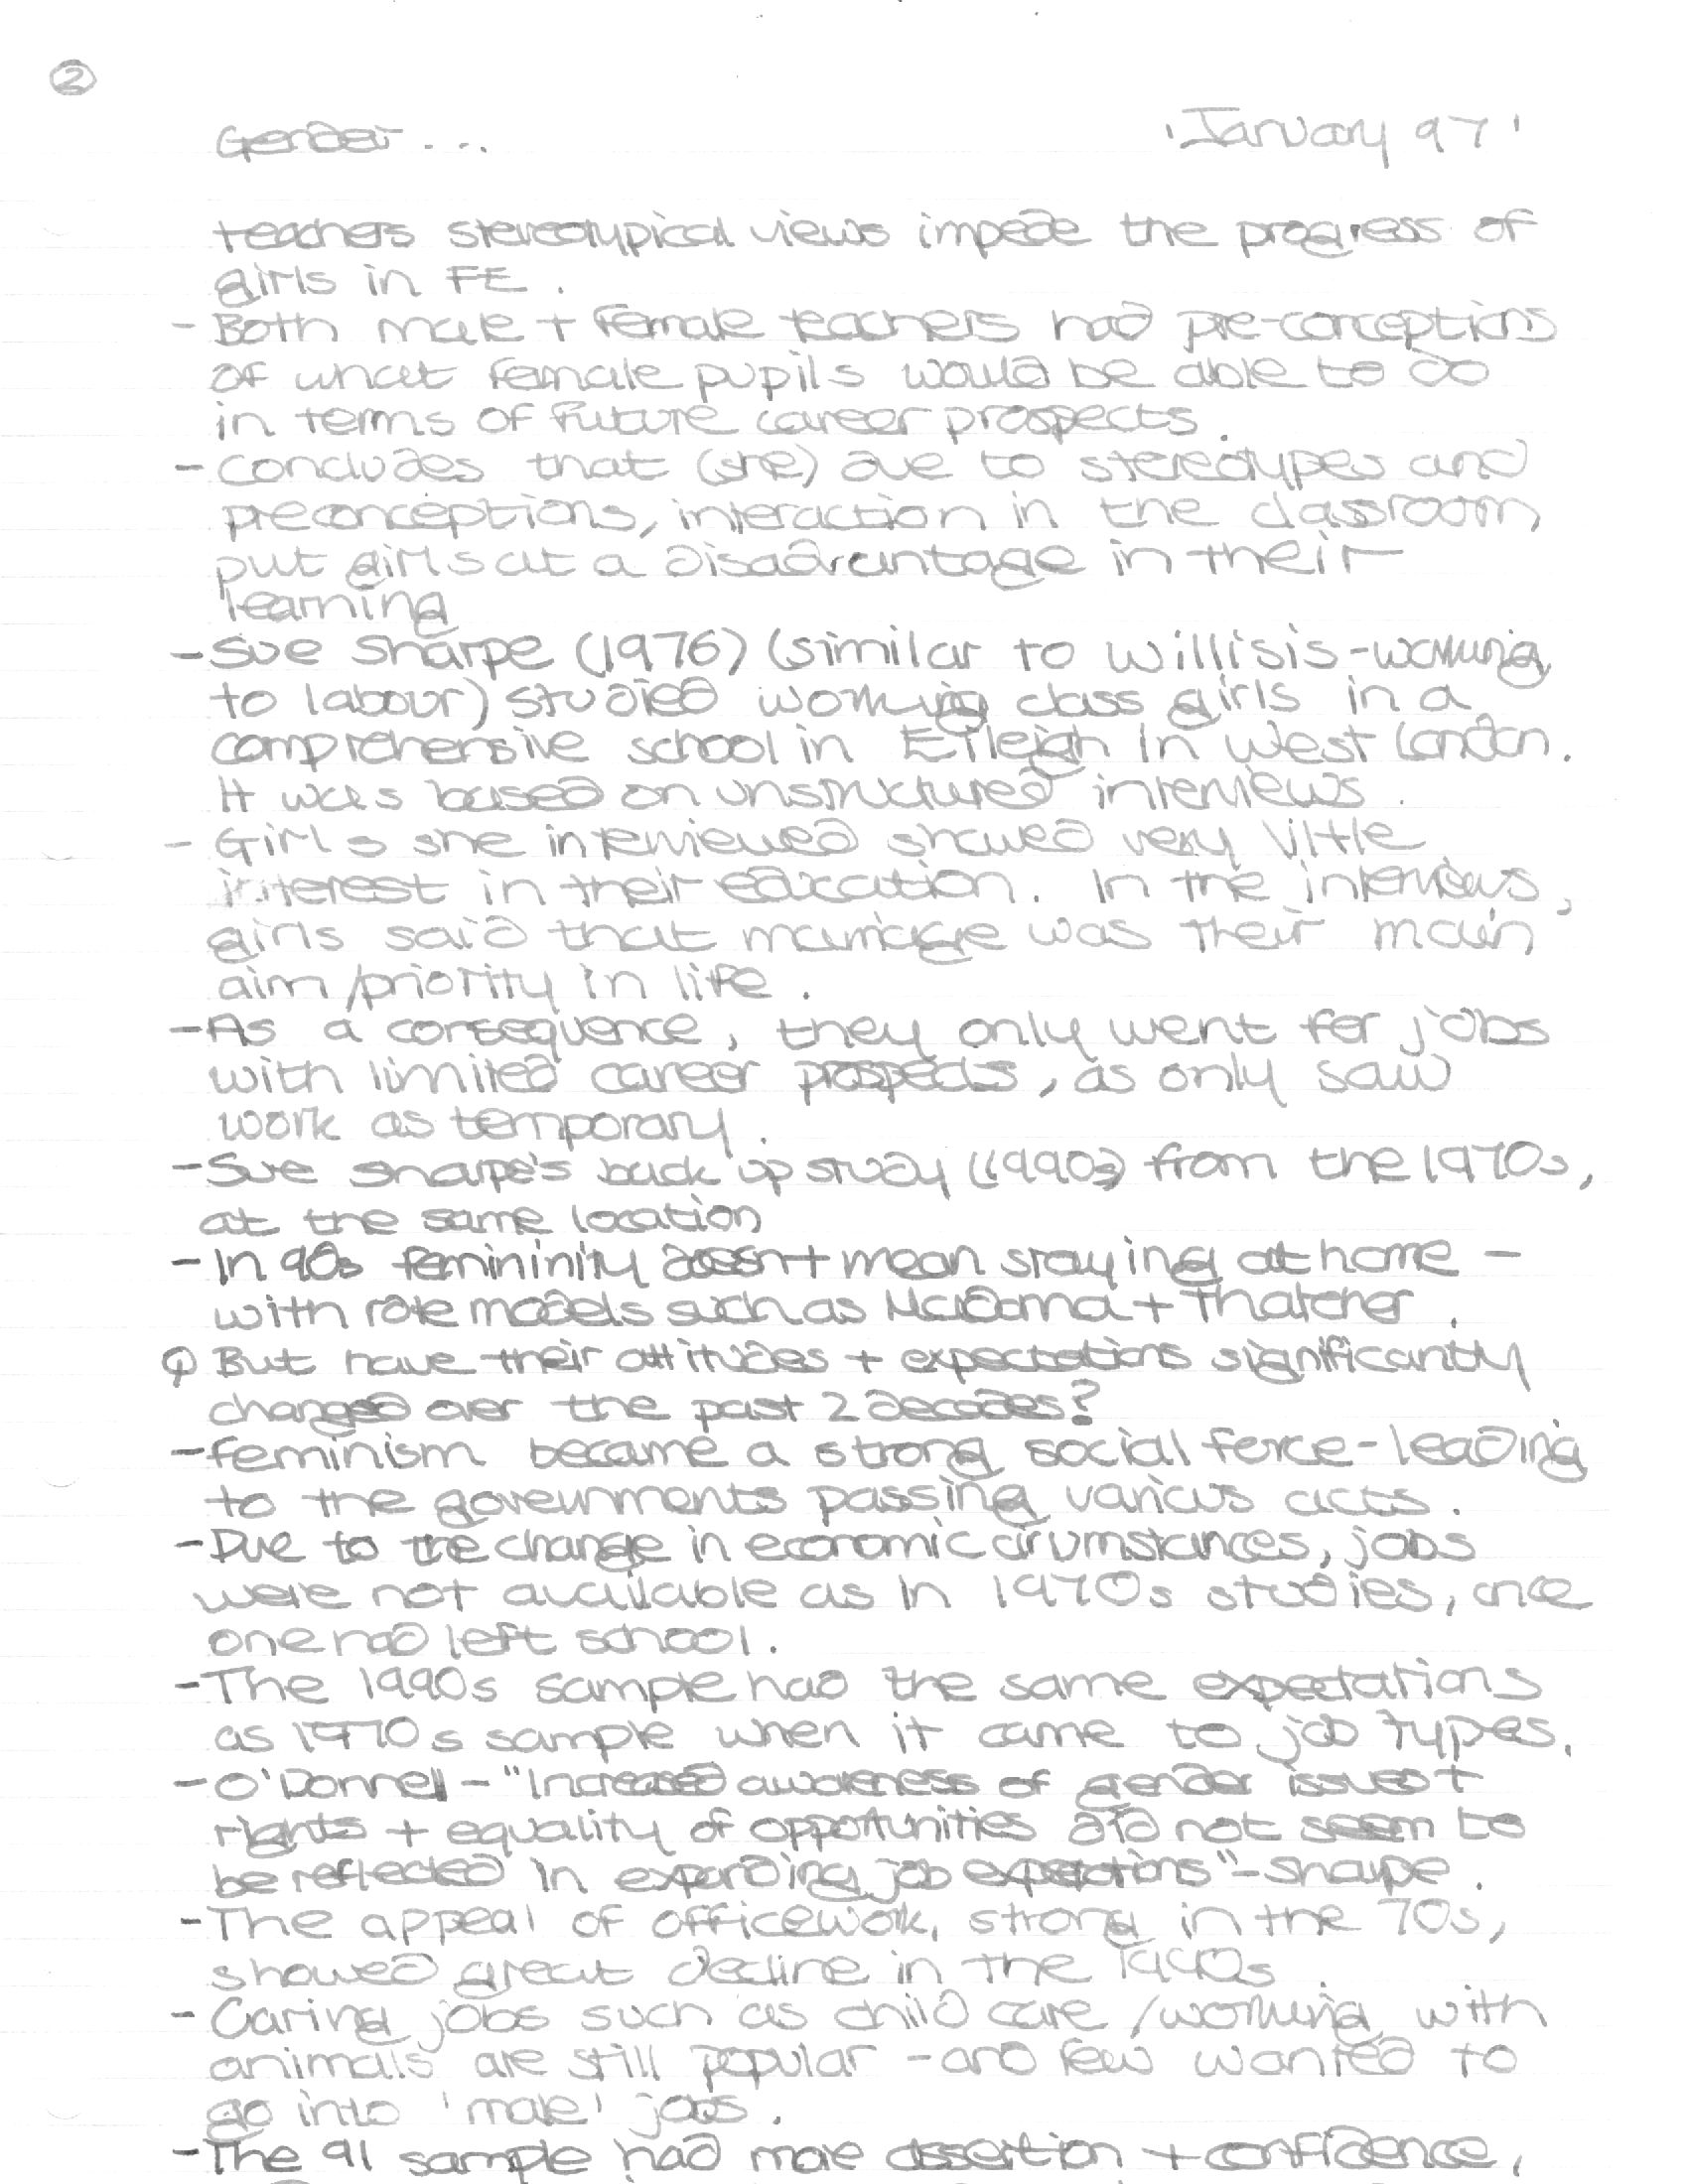 ②
Gender... 'January 97'
teachers stereotypical views impede the progress of
girls in FE.
- Both male + female teachers had pre-conceptions
of what female pupils would be able to do
in terms of future career prospects.
- concludes that (she) due to stereotypes and
preconceptions, interaction in the classroom
put girls at a disadvantage in their
learning
- Sue Sharpe (1976) (similar to Willisis - working
to labour) studied working class girls in a
comprehensive school in in West London.
It was based on unstructured interviews.
- Girls she interviewed showed very little
interest in their education. In the interviews,
girls said that marriage was their main
aim/priority in life.
- As a consequence, they only went for jobs
with limited career prospects, as only saw
work as temporary.
- Sue Sharpe's back up study (1990s) from the 1970s,
at the same location
- In 90s femininity doesn't mean staying at home -
with role models such as Madonna + Thatcher.
Q But have their attitudes + expectations significantly
changed over the past 2 decades?
- feminism became a strong social force - leading
to the governments passing various acts.
- Due to the change in economic cirumstances, jobs
were not available as in 1970s studies, once
one had left school.
- The 1990s sample had the same expectations
as 1970s sample when it came to job types.
- O'Donnell - "Increased awareness of gender issues +
rights + equality of opportunities did not seem to
be reflected in expanding job expectations" - Sharpe.
- The appeal of officework, strong in the 70s,
showed great decline in the 1990s.
- Caring jobs such as child care / working with
animals are still popular - and few wanted to
go into 'male' jobs.
- The 91 sample had more assertion + confidence,